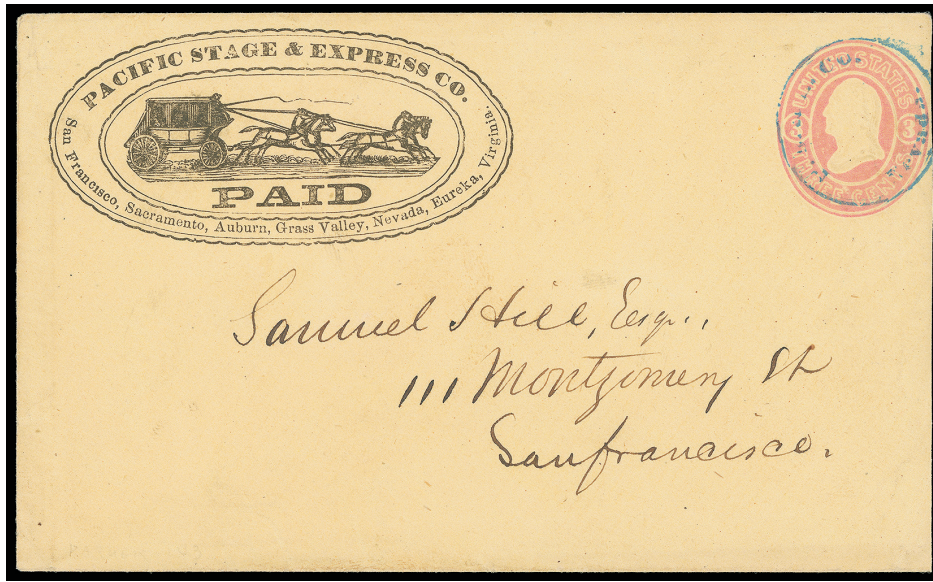 PACIFIC STAGE & EXPRESS CO.
PAID
San Francisco, Sacramento, Auburn, Grass Valley, Nevada, Eureka, Virginia.
UNITED STATES
3 3
THREE CENTS
CO.
Samuel Hill, Esqr.,
111 Montgomery St
Sanfrancisco.